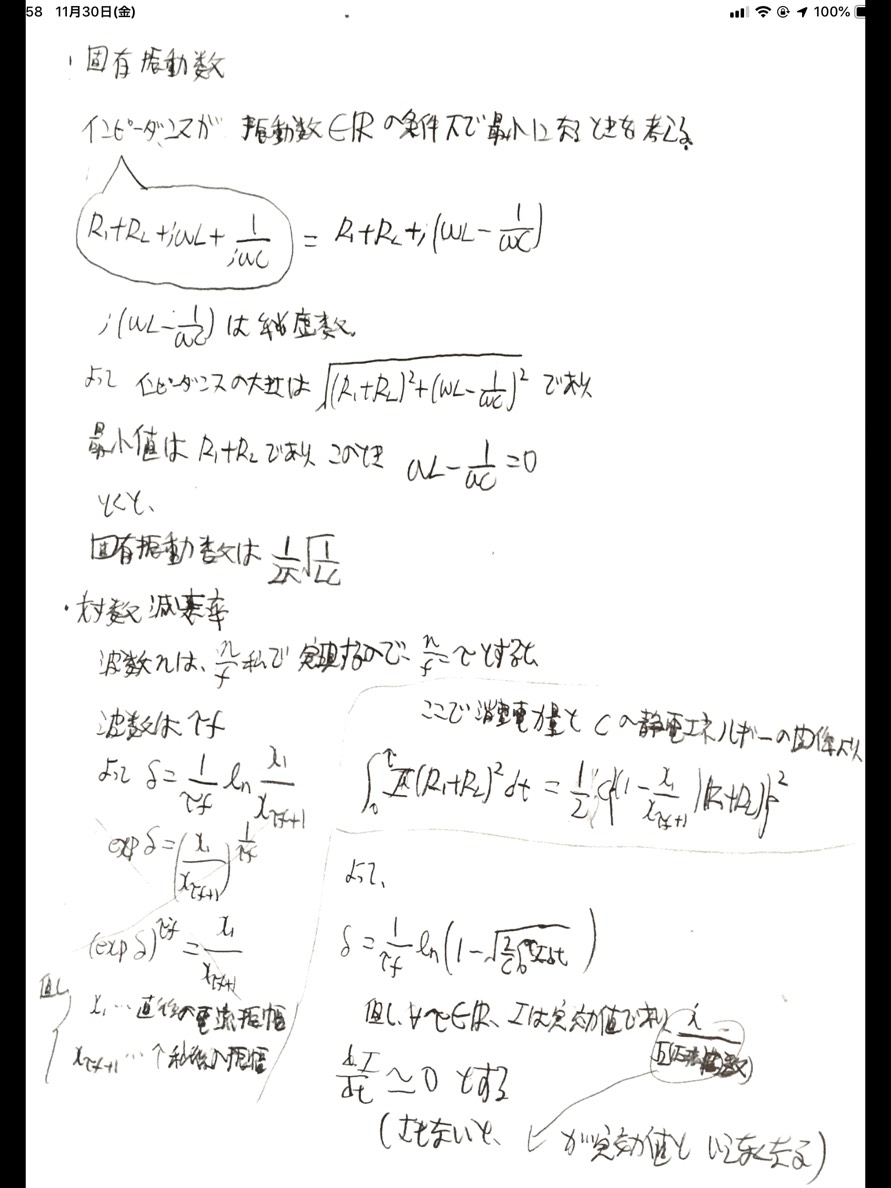 58 11月30日(金) 100%
・固有振動数
インピーダンスが 振動数∈ℝの条件下で最小になるときを考える。
R₁+R₂+jωL+1/(jωC) = R₁+R₂+j(ωL-1/(ωC))
j(ωL-1/(ωC))は純虚数。
よって インピーダンスの大きさは √((R₁+R₂)²+(ωL-1/(ωC))²) であり
最小値は R₁+R₂であり このとき ωL-1/(ωC)=0
とくと、
固有振動数は 1/(2π)√(1/(LC))
・対数減衰率
波数nは、n/f 秒で 実現するので、n/f=τとすると
波数はτf
よって δ=1/(τf) ln x₁/x_{τf+1}
exp δ=(x₁/x_{τf+1})^{1/(τf)}
(exp δ)^{τf}=x₁/x_{τf+1}
但し
x₁…直後の電流振幅
x_{τf+1}…τ秒後の振幅
ここで消費電力量とCの静電エネルギーの関係より
∫₀^τ I(R₁+R₂)²dt = 1/2 C{(1-x₁/x_{τf+1})(R₁+R₂)}²
よって、
δ=1/(τf) ln(1-√(2/C ∫₀^τ I dt))
但し、∀τ∈ℝ、Iは実効値であり
dI/dt≃0 とする
(さもないと、 が実効値と いえなくなる)